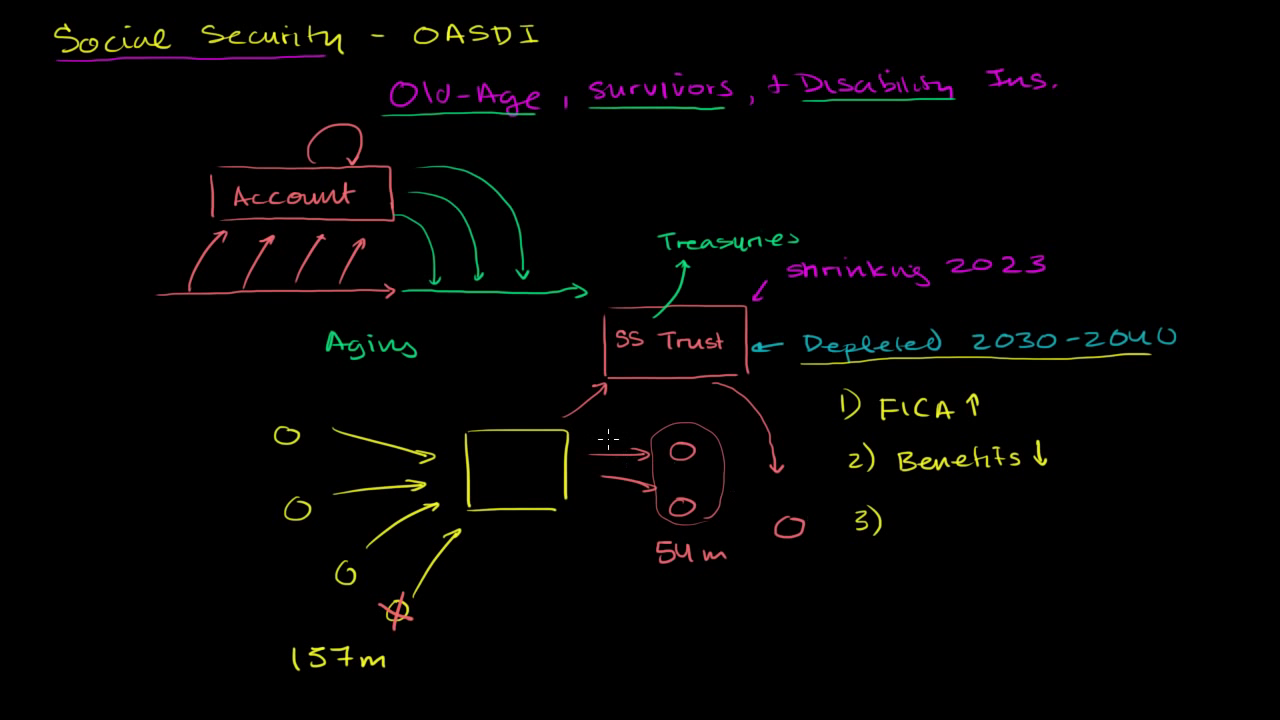 Social Security - OASDI
Old-Age, survivors, + Disability Ins.
Account
Treasuries
shrinking 2023
SS Trust
Depleted 2030-2040
Aging
1) FICA ↑
2) Benefits ↓
3)
54m
157m